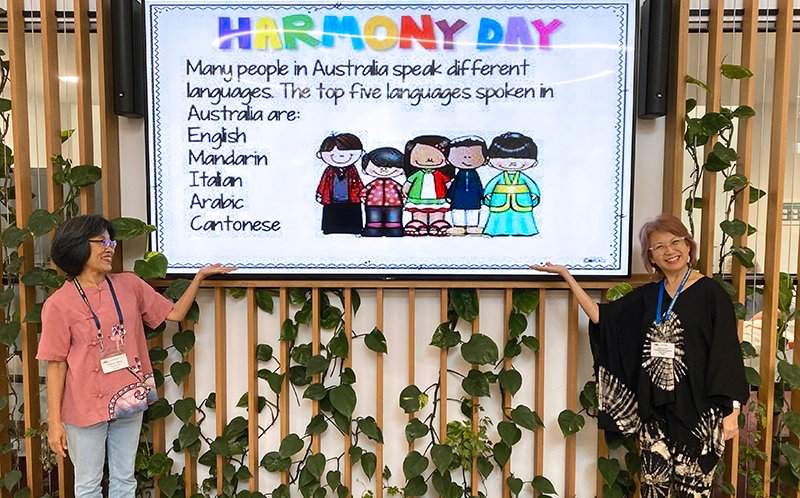 HARMONY DAY
Many people in Australia speak different
languages. The top five languages spoken in
Australia are:
English
Mandarin
Italian
Arabic
Cantonese